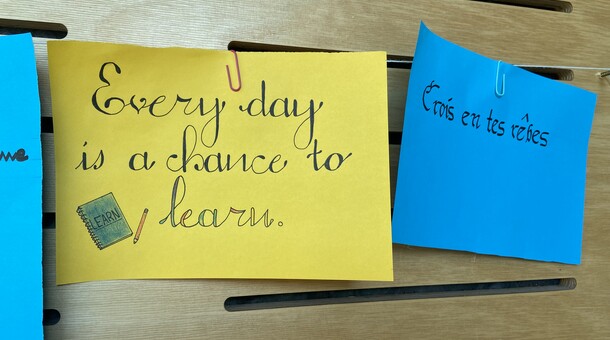 Every day
is a chance to
learn.
LEARN
Crois en tes rêbes